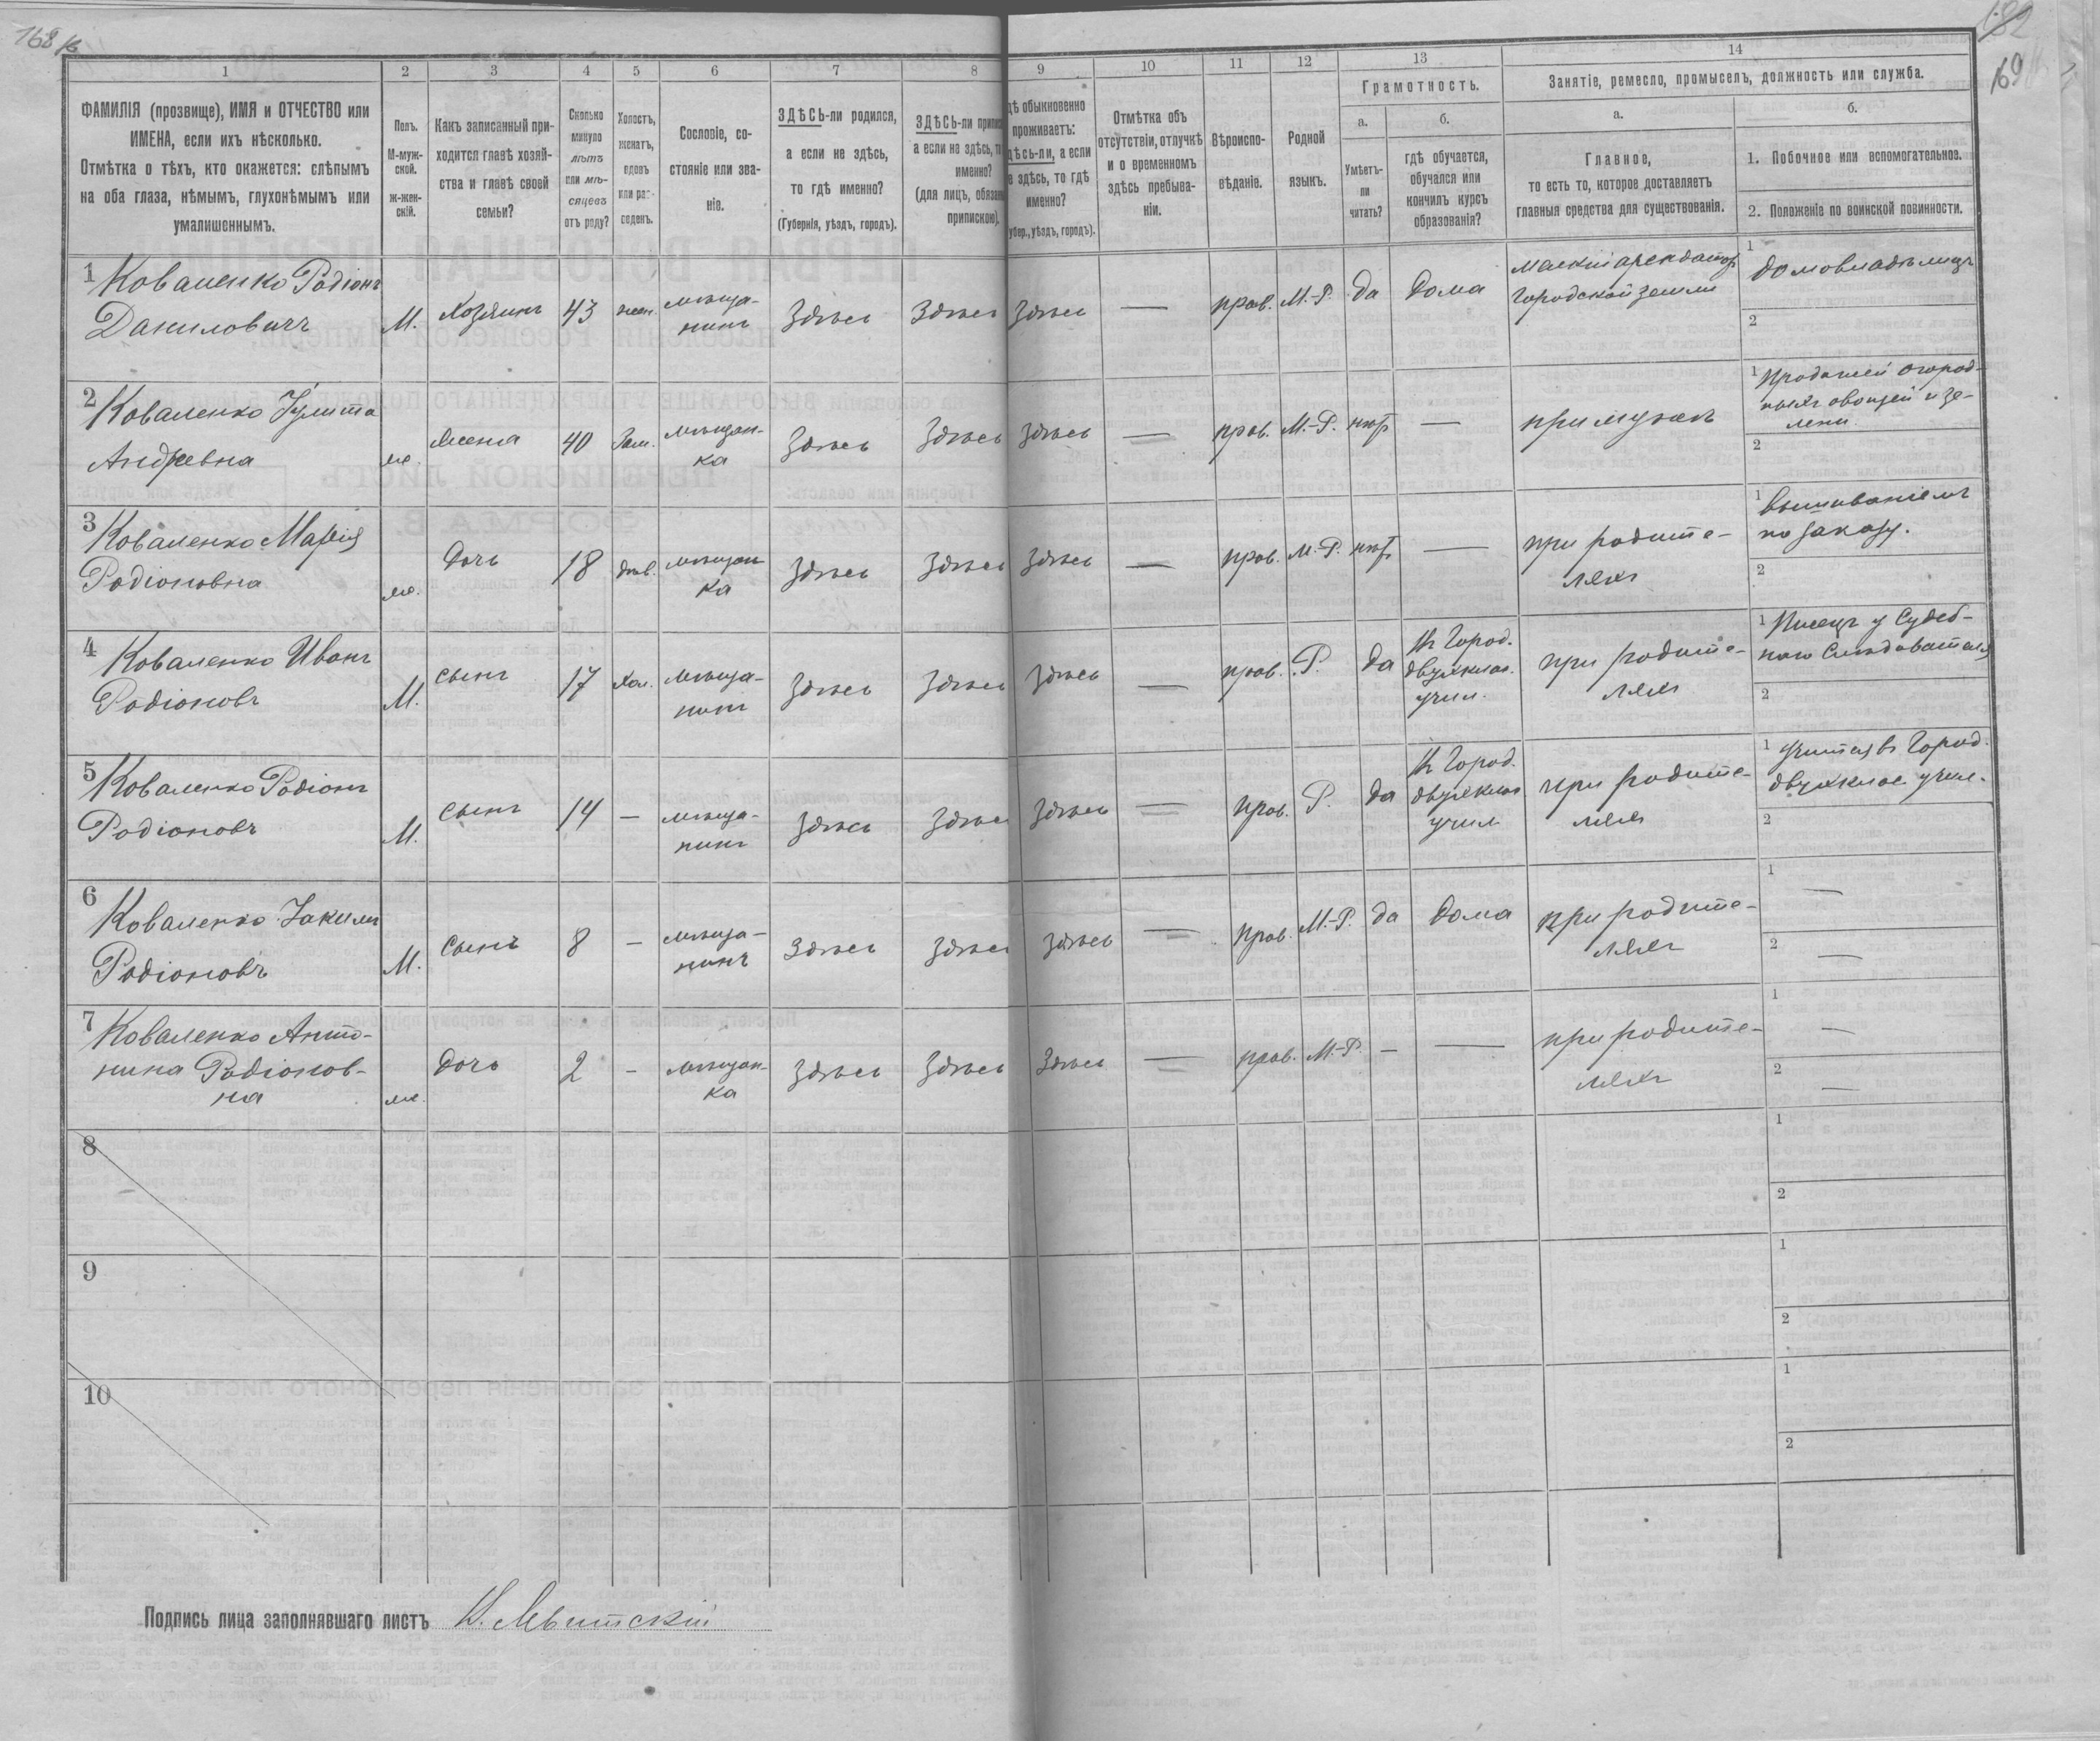 168 182
169
1 2 3 4 5 6 7 8 9 10 11 12 13 14
ФАМИЛІЯ (прозвище), ИМЯ и ОТЧЕСТВО или
ИМЕНА, если ихъ нѣсколько.
Отмѣтка о тѣхъ, кто окажется: слѣпымъ
на оба глаза, нѣмымъ, глухонѣмымъ или
умалишеннымъ.
Полъ.
М-муж-
ской.
ж-жен-
скій.
Какъ записанный при-
ходится главѣ хозяй-
ства и главѣ своей
семьи?
Сколько
минуло
лѣтъ
или мѣ-
сяцевъ
отъ роду?
Холостъ,
женатъ,
вдовъ
или раз-
веденъ.
Сословіе, со-
стояніе или зва-
ніе.
ЗДѢСЬ-ли родился,
а если не здѣсь,
то гдѣ именно?
(Губернія, уѣздъ, городъ).
ЗДѢСЬ-ли припис
а если не здѣсь, т
именно?
(для лицъ, обязан
припискою).
дѣ обыкновенно
проживаетъ:
дѣсь-ли, а если
е здѣсь, то гдѣ
именно?
убер., уѣздъ, городъ).
Отмѣтка объ
отсутствіи, отлучкѣ
и о временномъ
здѣсь пребыва-
ніи.
Вѣроиспо-
вѣданіе.
Родной
языкъ.
Грамотность.
а.
Умѣетъ-
ли
читать?
б.
гдѣ обучается,
обучался или
кончилъ курсъ
образованія?
Занятіе, ремесло, промыселъ, должность или служба.
а.
Главное,
то есть то, которое доставляетъ
главныя средства для существованія.
б.
1. Побочное или вспомогательное.
2. Положеніе по воинской повинности.
1 Коваленко Родіонъ
Даниловичъ М. Хозяинъ 43 жен. мѣща-
нинъ Здѣсь Здѣсь Здѣсь — прав. М.-Р. да Дома
Малкій арендаторъ
Городской земли
1 домовладѣлецъ
2
2 Коваленко Іулита
Андреевна ж. Жена 40 Зам. мѣщан-
ка Здѣсь Здѣсь Здѣсь — прав. М.-Р. нѣтъ — при мужѣ
1 Продажей огород-
ныхъ овощей и зе-
лени
2
3 Коваленко Марія
Родіоновна ж. Дочь 18 дѣв. мѣщан-
ка Здѣсь Здѣсь Здѣсь — прав. М.-Р. нѣтъ — при родите-
ляхъ
1 Вышиваніемъ
по заказу.
2
4 Коваленко Иванъ
Родіоновъ М. Сынъ 17 Хол. мѣща-
нинъ Здѣсь Здѣсь Здѣсь — прав. Р. да
Въ Город.
двухклас.
учил.
при родите-
ляхъ
1 Писецъ у Судеб-
наго Слѣдователя
2
5 Коваленко Родіонъ
Родіоновъ М. Сынъ 14 — мѣща-
нинъ Здѣсь Здѣсь Здѣсь — прав. Р. да
Въ Город.
двухклас
учил
при родите-
ляхъ
1 Учится въ Город.
двухклас. учил.
2
6 Коваленко Іакимъ
Родіоновъ М. Сынъ 8 — мѣща-
нинъ Здѣсь Здѣсь Здѣсь — прав. М.-Р. да Дома при родите-
ляхъ
1 —
2 —
7 Коваленко Анто-
нина Родіонов-
на ж. Дочь 2 — мѣщан-
ка Здѣсь Здѣсь Здѣсь — прав. М.-Р. — — при родите-
ляхъ
1 —
2 —
8
1
2
9
1
2
10
1
2
Подпись лица заполнявшаго листъ